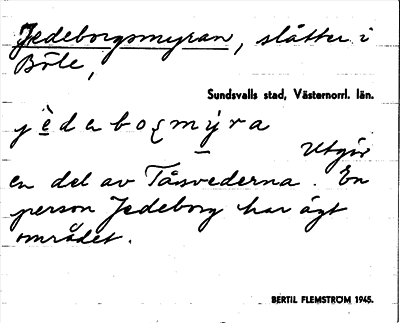 Jedeborgsmyran, slåtter i
Böle,
Sundsvalls stad, Västernorrl. län.
jèdabomỳra
Utgör
en del av Tåsvederna. En
person Jedeborg har ägt
området.
BERTIL FLEMSTRÖM 1945.